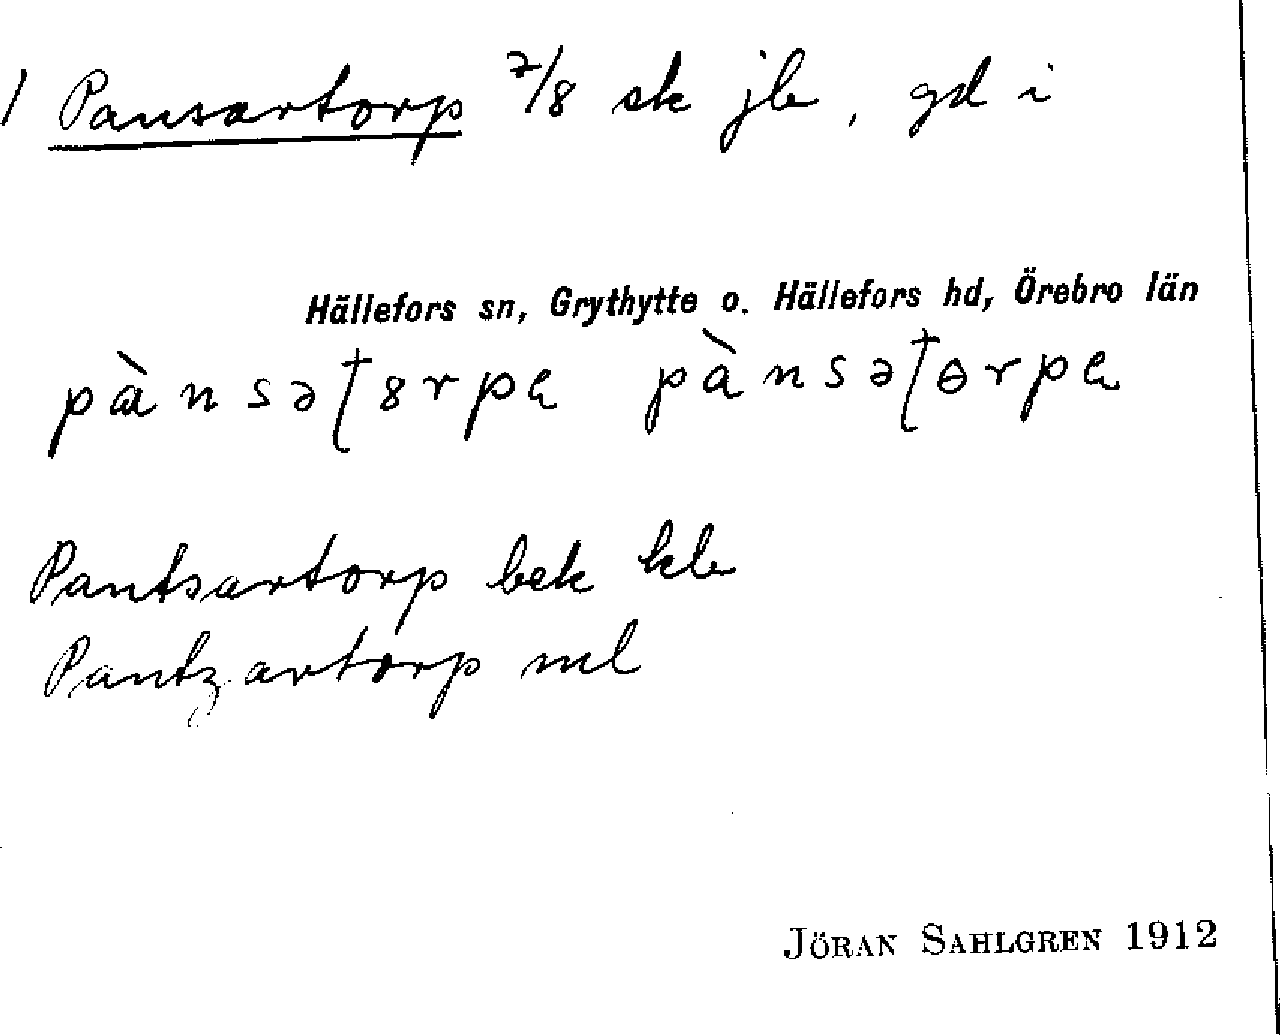 1 Pansartorp 7/8 sk jb, gd i
Hällefors sn, Grythytte o. Hällefors hd, Örebro län
Pantsartorp bek kb
Pantzartorp ml
JÖRAN SAHLGREN 1912